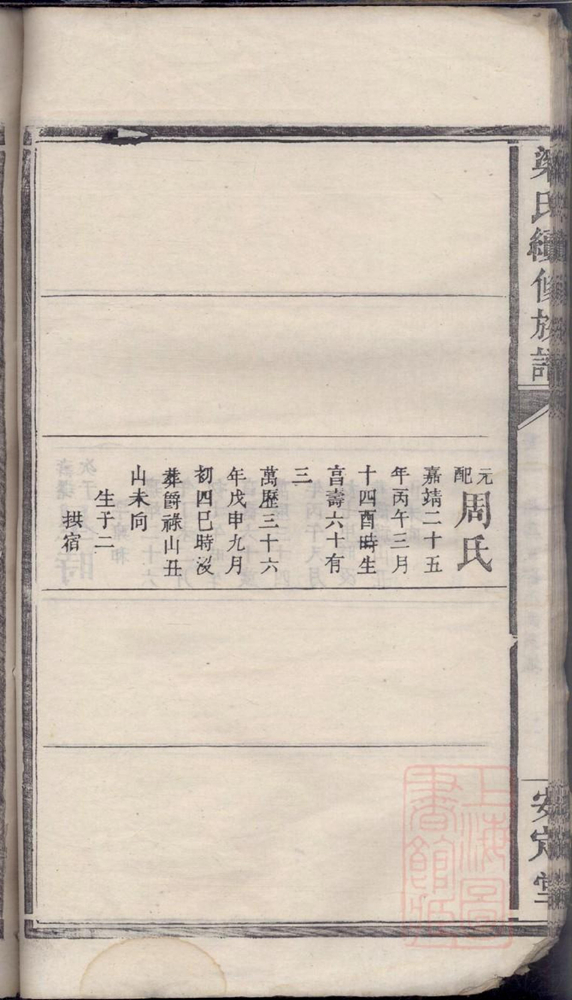 梁氏續修族譜
安定堂
元配周氏
嘉靖二十五
年丙午三月
十四酉時生
享壽六十有
三
萬歷三十六
年戊申九月
初四巳時沒
葬爵祿山丑
山未向
生子二
拱宿
上海圖書館藏